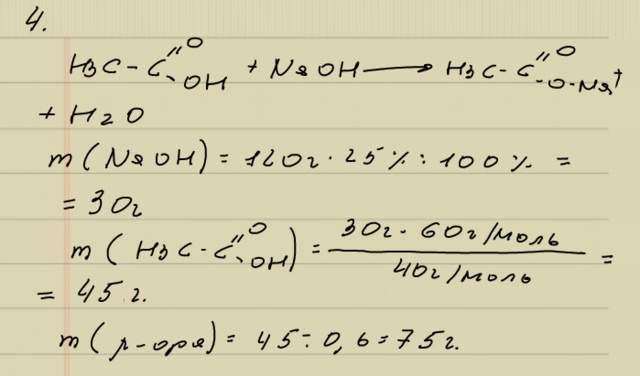 4.
H3C-C(=O)-OH + NaOH → H3C-C(=O)-O-Na+
+ H2O
m (NaOH) = 120г · 25% : 100% =
= 30г
m (H3C-C(=O)-OH) = (30г · 60г/моль)/(40г/моль) =
= 45 г.
m (р-ора) = 45 ÷ 0,6 = 75г.